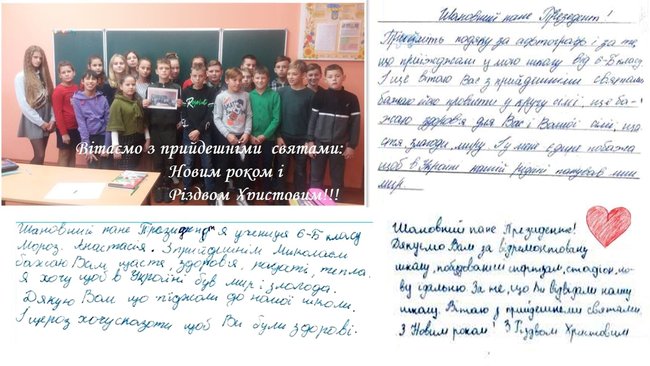 Вітаємо з прийдешніми святами:
Новим роком і
Різдвом Христовим!!!
Шановний пане Президент!
Прийміть подяку за автографи і за те,
що приїжджали у мою школу від 6-Б класу
І ще вітаю Вас з прийдешніми святами
бажаю його провести у крузі сімї, ще ба-
жаю здоров'я для Вас і Вашої сімї, ща-
стя, злагоди, миру. І у мене єдине побажа
щоб в Україні нашій рідній панував мир
мир
Шановний пане Президент я учениця 6-Б класу
Мороз Анастасія. З прийдешнім Миколаєм
бажаю Вам щастя, здоров'я, радості, тепла.
Я хочу щоб в Україні був мир і злагода.
Дякую Вам що приїжали до нашої школи.
І щераз хочу сказати щоб Ви були здорові.
Шановний пане Президенте!
Дякуємо Вам за відремонтовану
школу, побудований спортзал, стадіон, но-
ву їдальню. За те, що Ви відвідали нашу
школу. Вітаю з прийдешніми святами.
З Новим роком! З Різдвом Христовим